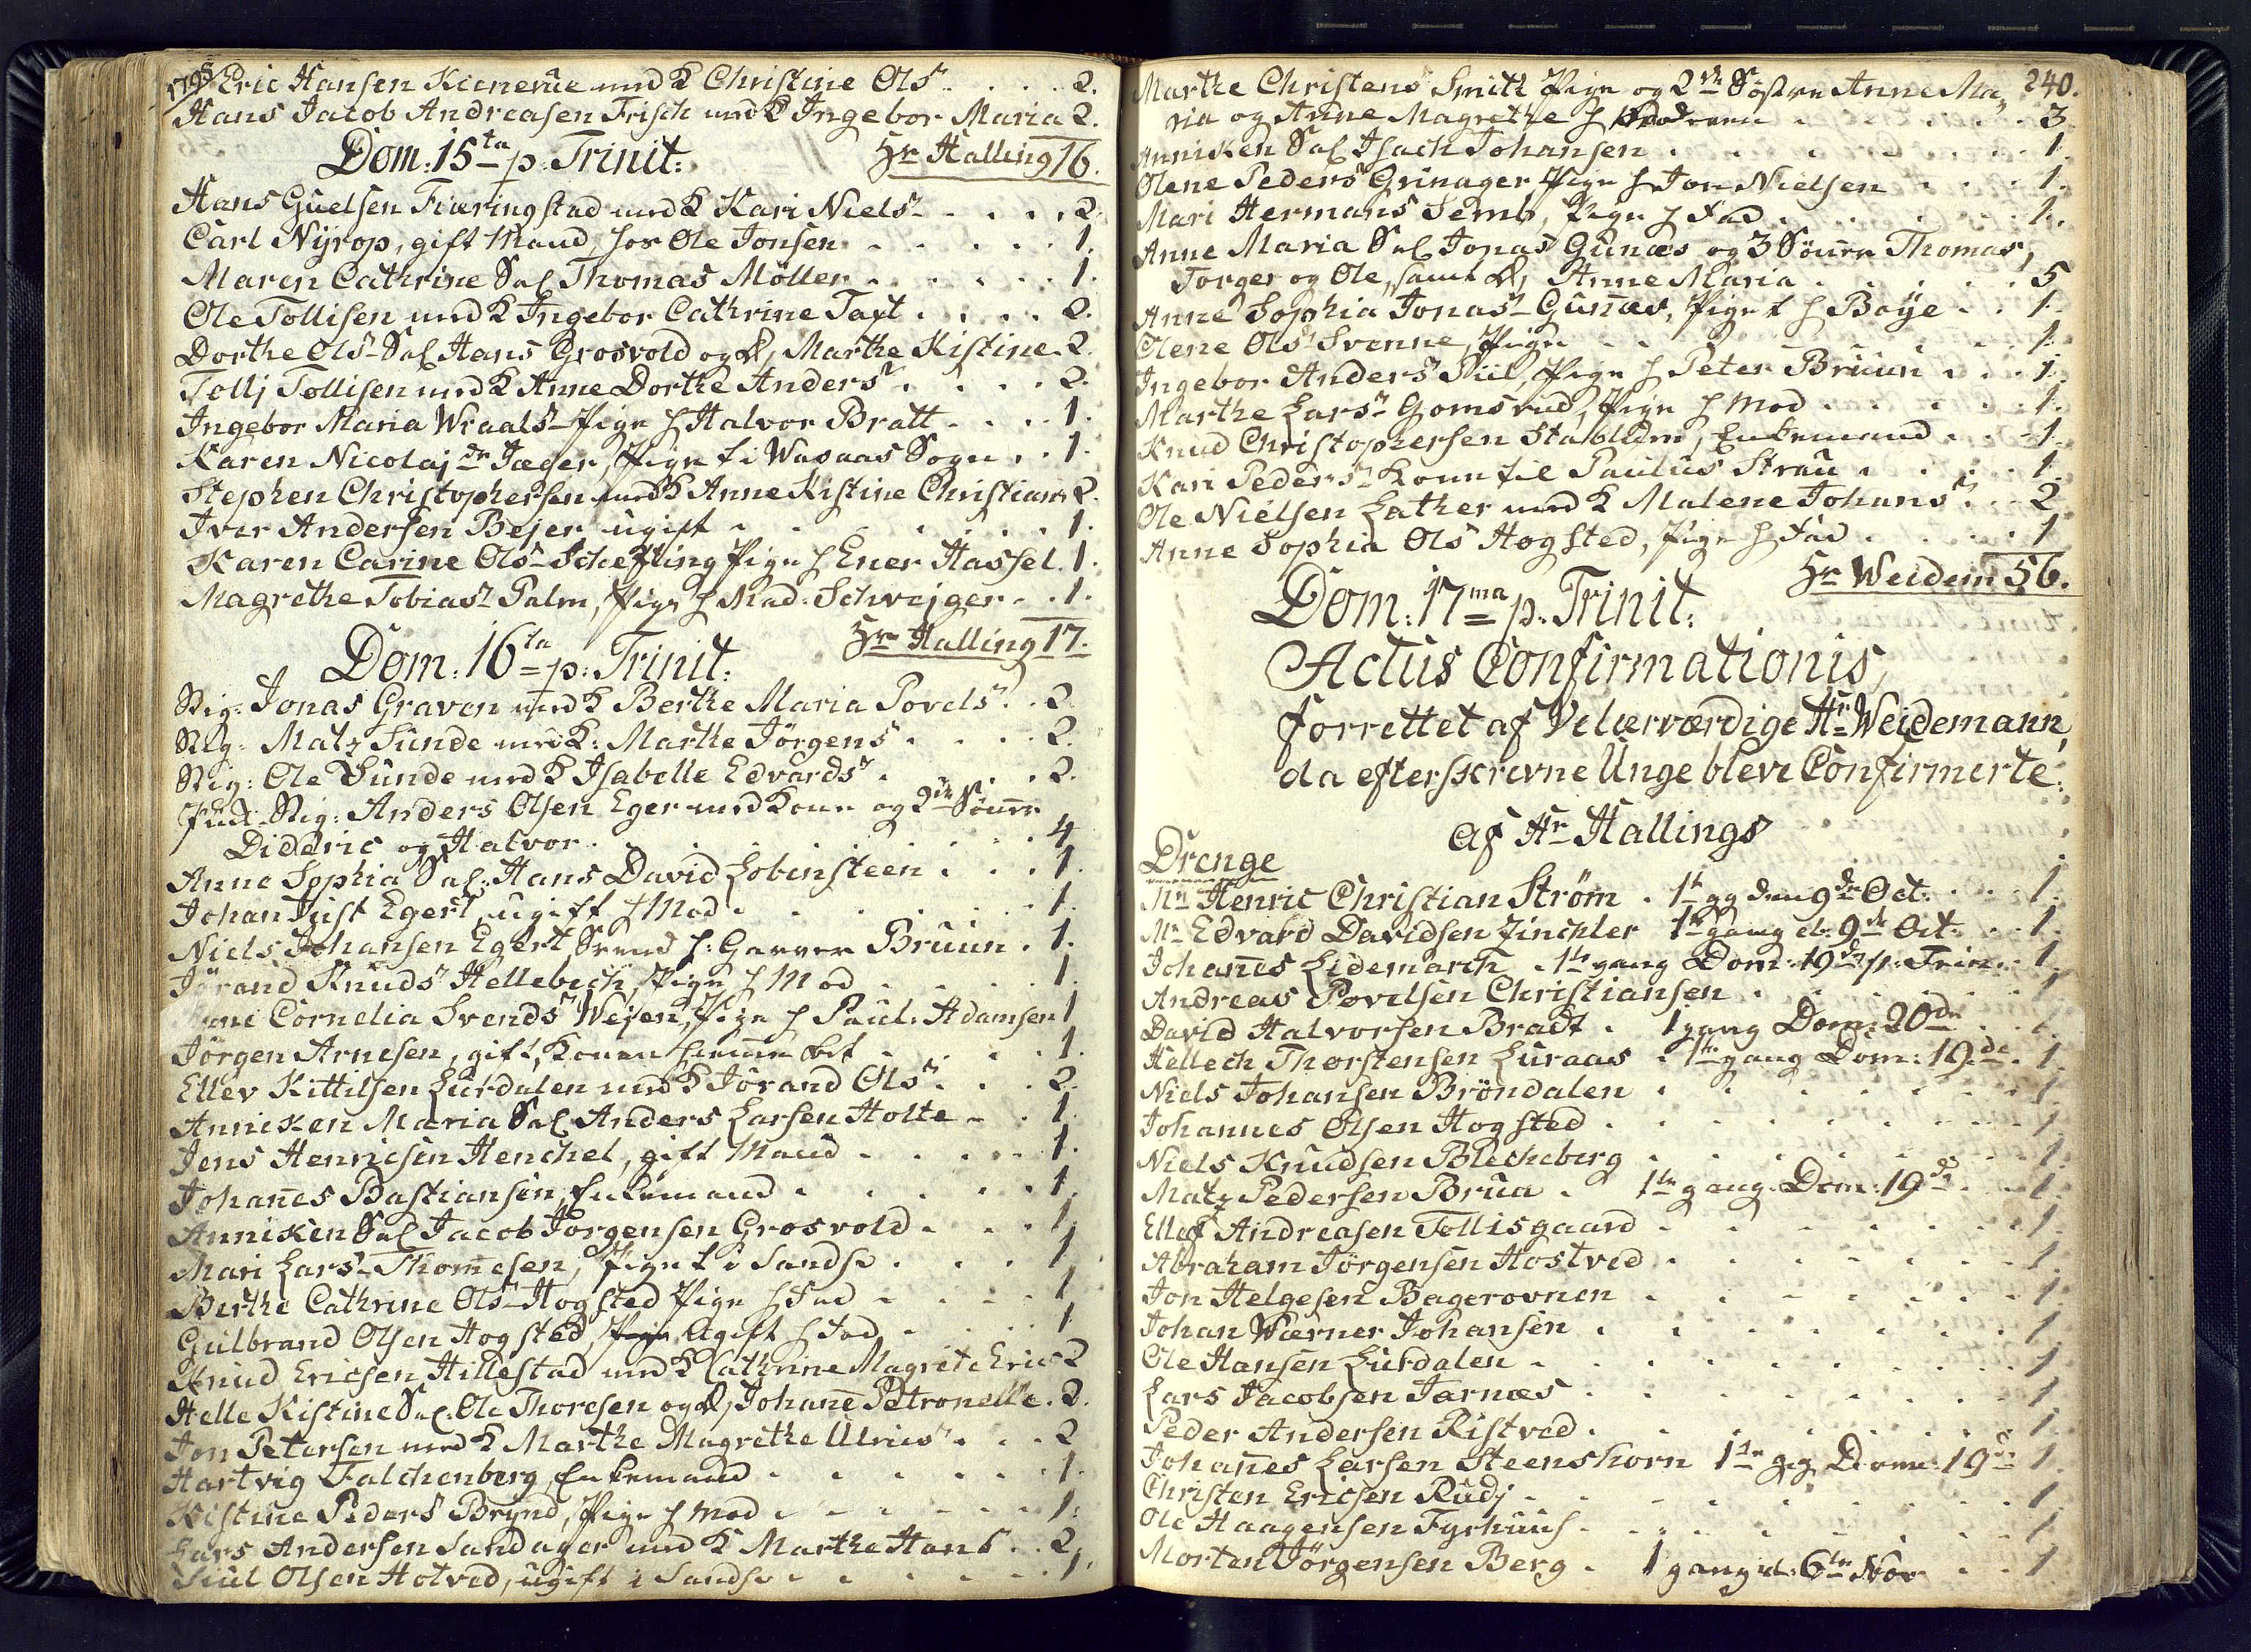 1795
Eric Hansen Kienerue med K Christine Ols 2.
Hans Jacob Andreasen Frisch med K Ingebor Maria 2.
Hr Halling 16.
Dom: 15ta p. Trinit:
Hans Guelsen Fiæringstad med K Kari Niels 2.
Carl Nyrop, gift Mand, hos Ole Jonsen 1.
Maren Cathrine Sal Thomas Möller 1.
Ole Tollisen med K Ingebor Cathrine Taxt 2.
Dorthe Ols Sal Hans Grosvold og D, Marthe Kistine 2.
Tollj Tollisen med K Anne Dorthe Anders 2.
Ingebor Maria Wraals Pige h Halvor Bratt 1.
Karen Nicolaj dr Jæger, Pige t i Wasaas Sogn 1.
Stephen Christophersen med K Anne Kistine Christians 2.
Iver Andersen Bejer ugift 1.
Karen Carine Ols Schefling Pige h Ener Hassel 1.
Magrethe Tobias Palm, Pige h Mad: Schvejger 1.
Hr Halling 17.
Dom: 16ta p: Trinit:
Stig: Jonas Graven med K Berthe Maria Povels 2.
Stig: Matz Sunde med K: Marthe Jörgens 2.
Stig: Ole Sunde med K Isabelle Edvards 2.
Stig: Anders Olsen Eger med Kone og 2de Sönner
Dideric og Halvor 4
Anne Sophia Sal: Hans David Lobinsteen 1.
Johan Just Egert, ugift h Mod 1.
Niels Johansen Egert Svend h: Garver Bruun 1.
Jörand Knuds Hellebech, Pige h Mod 1.
Cornelia Svends Wejen, Pige h Paul: Adamsen 1
Jörgen Arnesen, gift, Konen 1.
Ellev Kittilsen Lurdalen med K Jörand Ols 2.
Anniken Maria Sal Anders Larsen Holte 1.
Jens Henricsen Henchel, gift Mand 1.
Johanes Bastiansen, Enkemand 1.
Anniken Sal Jacob Jörgensen Grosvold 1.
Mari Lars Thomesen, Pige t i Sandsv 1
Berthe Cathrine Ols Hogsted Pige h Fad 1
Gulbrand Olsen Hogsted, ugift h Fad 1
Knud Ericsen Hillestad med K Cathrine Magrete Erics 2
Helle Kistine Sal. Ole Thoresen og D, Johane Petronelle 2.
Jon Petersen med K Marthe Magrethe Ulrics 2
Hartvig Falchenberg, Enkemand 1.
Kistine Peders Brynd, Pige h Mod 1.
Lars Andersen Sandager med K Marthe Hans 2
Olsen Hotved, ugift i Sandsv 1.
240.
Marthe Christens Smith Pige og 2de Söstre Anne Ma
ria og Anne Magrethe h 3
Anniken Sal Isach Johansen 1.
Olene Peders Grinager Pige h Jon Nielsen 1.
Mari Hermans Semb, Pige h Fad 1.
Anne Maria Sal Jonas Gunæs og 3 Sönner Thomas,
Torger og Ole, samt D, Anne Maria 5
Anne Sophia Jonas Gunæs, Pige t h Boye 1.
Olene Ols Svenne, Pige 1.
Ingebor Anders Piil, Pige h Peter Bruun 1.
Marthe Lars Gomsrud, Pige h Mod 1.
Knud Christophersen Stablum, Enkemand 1.
Kari Peders Kone til Paulus Strau 1.
Ole Nielsen Lather med K Malene Johans 2
Anne Sophia Ols Hogsted, Pige h Fad 1
Hr Weidem 56.
Dom: 17ma p. Trinit:
Actus Confirmationis,
forrettet af Velærværdige Hr Weidemann,
da efterskrevne Unge bleve Confirmerte:
af Hr Hallings
Drenge
Mr Henric Christian Ström 1te gg den 9de Oct. 1.
Mr Edvard Davidsen Zinchler 1te gang d. 9de Oct. 1.
Johanes Lidemarch 1te gang Dom: 19de p. Trin 1.
Andreas Povelsen Christiansen 1
David Halvorsen Bradt 1 gang Dom: 20de 1.
Hellech Thorstensen Luraas 1te gang Dom: 19.de 1
Niels Johansen Bröndalen 1.
Johannes Olsen Hogsted 1
Niels Knudsen Blecheberg 1.
Matz Pedersen Brua 1te gang Dom: 19de 1.
Ellef Andreasen Tollisgaard 1
Abraham Jörgensen Hostved 1.
Jon Helgesen Bagerovnen 1
Johan Wærner Johansen 1
Ole Hansen Lurdalen 1
Lars Jacobsen Jarnæs 1
Peder Andersen Ristved 1
Johanes Larsen Steenshorn 1te gg Dom: 19de 1
Christen Ericsen Rudj 1
Ole Haagensen Fyrhuus 1
Morten Jörgensen Berg 1 gang d: 6te Nov 1